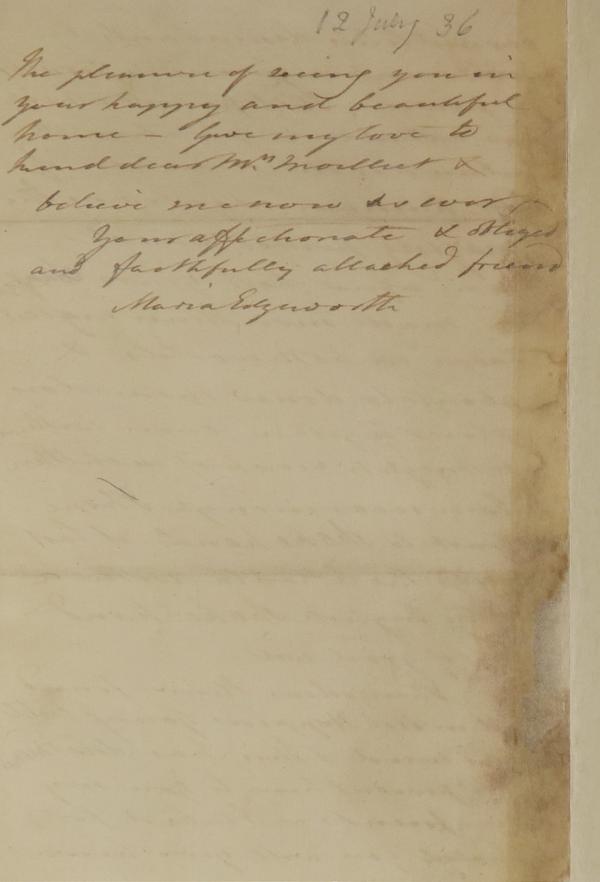 12 July 36
the pleasure of seeing you in
your happy and beautiful
home – Give my love to
kind dear Mrs Moilliet &
believe me now as ever
your affectionate & obliged
and faithfully attached friend
Maria Edgeworth